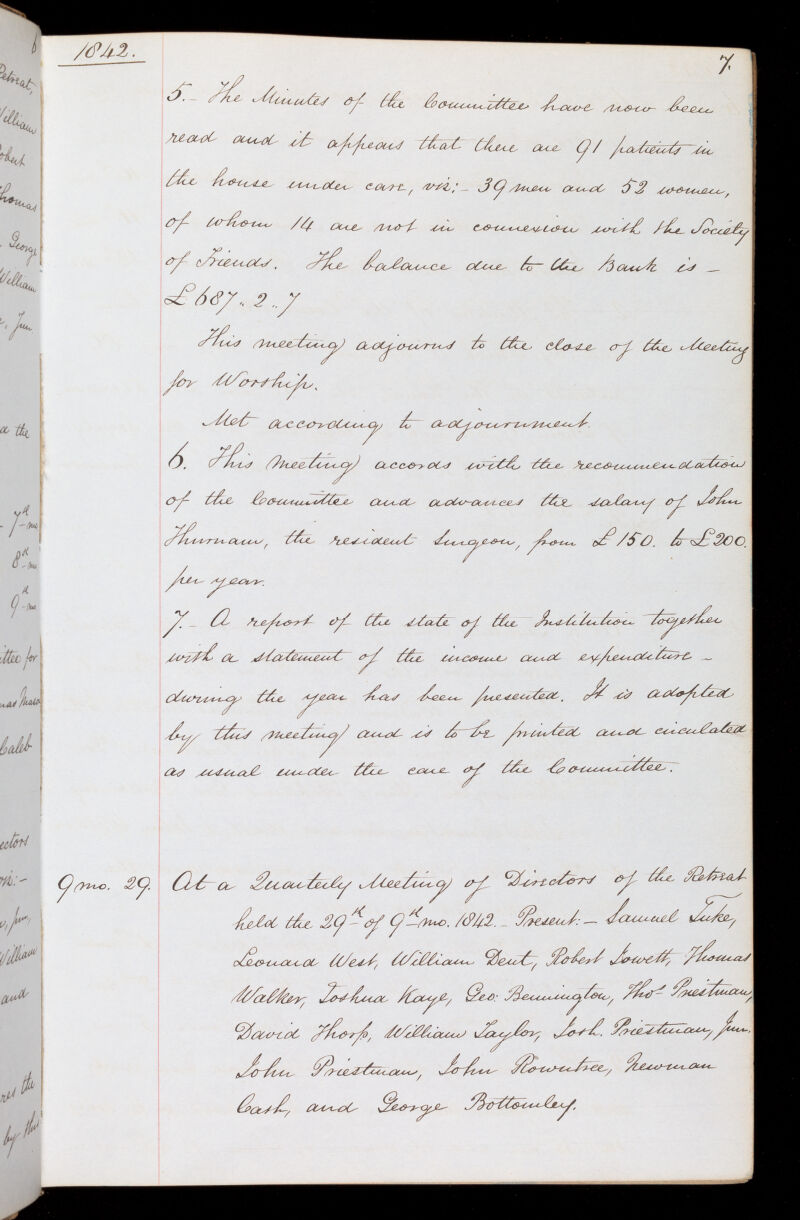 1842.
7.
5. – The Minutes of the Committee have now been
read and it appears that there are 91 patients in
the house under care, viz: – 39 men and 52 women,
of whom 14 are not in connexion with the Society
of Friends. The balance due to the Bank is –
£687 " 2 " 7
This meeting adjourns to the close of the Meeting
for Worship.
Met according to adjournment.
6. This Meeting accords with the recommendation
of the Committee and advances the salary of John
Thurnam, the resident Surgeon, from £150. to £200.
per year.
7. – A report of the state of the Institution together
with a statement of the income and expenditure –
during the year has been presented. It is adopted
by this meeting and is to be printed and circulated
as usual under the care of the Committee.
9 mo. 29. At a Quarterly Meeting of Directors of the Retreat
held the 29th of 9th mo. 1842. – Present: – Samuel Tuke,
Leonard West, William Dent, Robert Jowett, Thomas
Walker, Joshua Kaye, Geo: Bennington, Thos. Priestman,
David Thorp, William Taylor, Josh. Priestman, Jun.
John Priestman, John Rowntree, Newman
Cash, and George Bottomley.
Retreat,
William
Thomas
George
William
Jun
the
7th mo
8th mo
9th mo
for
Caleb
William
and
the
by this